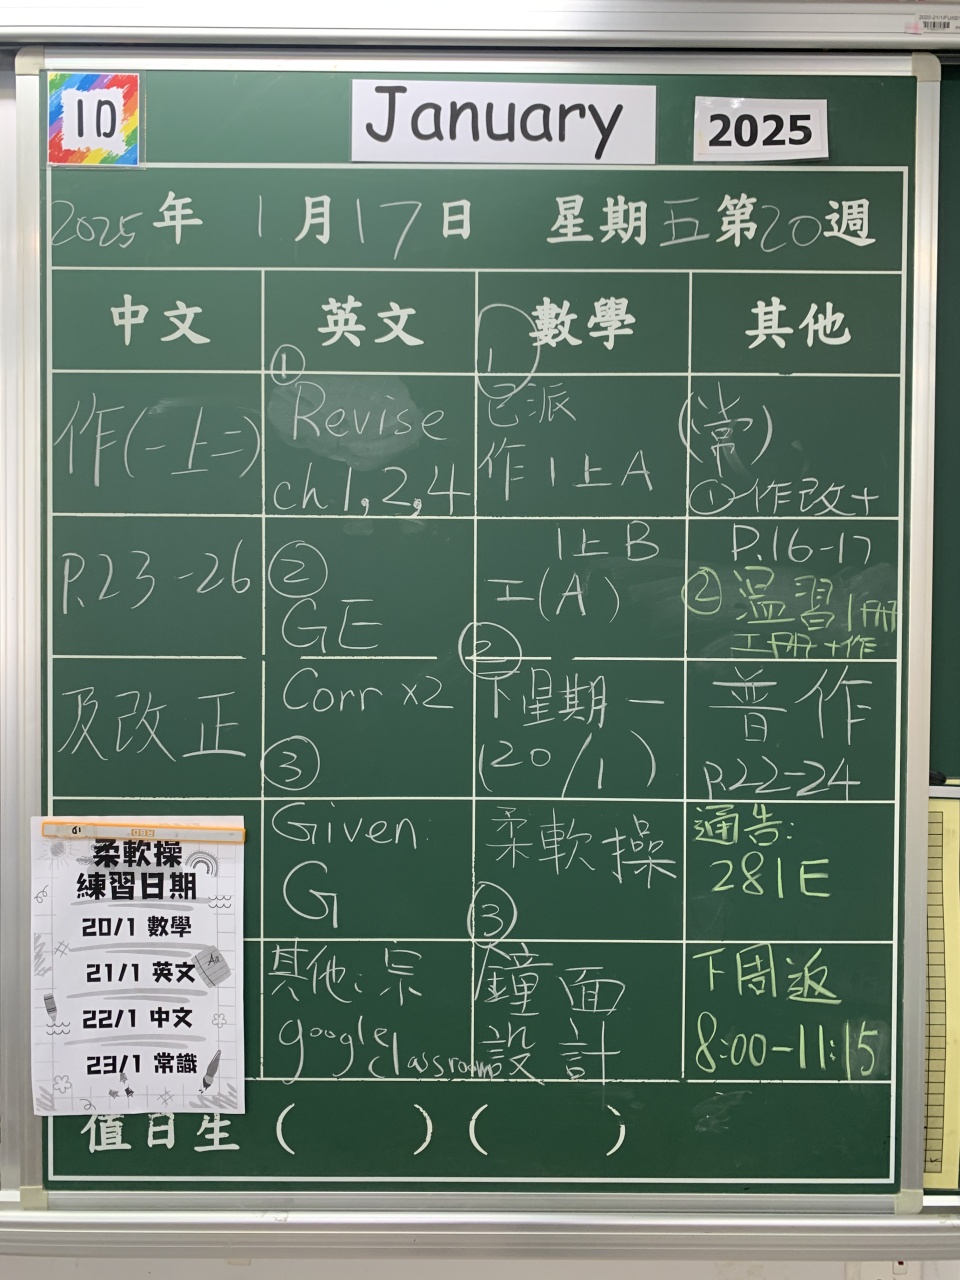 1D
January
2025
2025年 1月17日 星期五第20週
中文
英文
數學
其他
作(一上二)
P.23-26
及改正
① Revise
ch1,2,4
②
GE
Corr x2
③
Given
G
其他:宗
google classroom
1
已派
作1上A
1上B
工(A)
②
下星期一
(20/1)
柔軟操
③
鐘面
設計
(常)
①作改+
P.16-17
②溫習1冊
工冊+作
普作
P.22-24
通告:
281E
下周返
8:00-11:15
柔軟操
練習日期
20/1 數學
21/1 英文
22/1 中文
23/1 常識
值日生 ( ) ( )